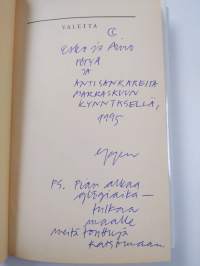 VALETTA
Esko ja Aino
PÖYSÄ
JA
ANTISANKAREITA
MARRASKUUN
KYNNYKSELLÄ,
1995
PS. Pian alkaa
glögiaika —
tulkaa
maalle
meitä tonttuja
katsomaan